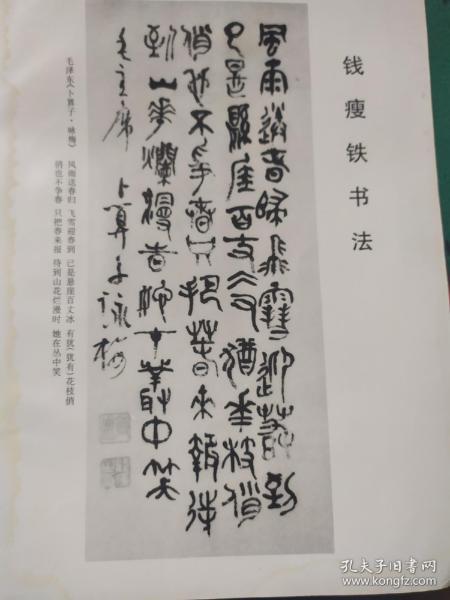 钱瘦铁书法
風雨送春歸飛雪迎春到
已是縣崖百丈猶華枝俏
俏也不爭春只把春來報待
到山華爛漫時她在叢中笑
毛主席卜算子詠梅
毛泽东《卜算子·咏梅》 风雨送春归 飞雪迎春到 已是悬崖百丈冰 有犹(犹有)花枝俏
俏也不争春 只把春来报 待到山花烂漫时 她在丛中笑
孔夫子旧书网
www.kongfz.com